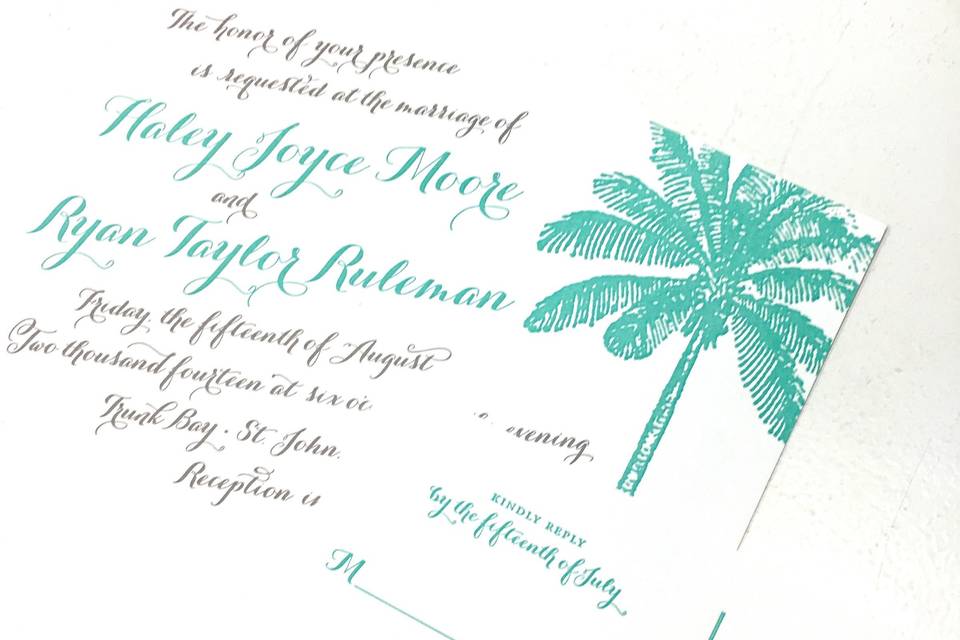 The honor of your presence
is requested at the marriage of
Haley Joyce Moore
and
Ryan Taylor Ruleman
Friday, the fifteenth of August
Two thousand fourteen at six evening
Trunk Bay • St. John,
Reception
KINDLY REPLY
by the fifteenth of July
M